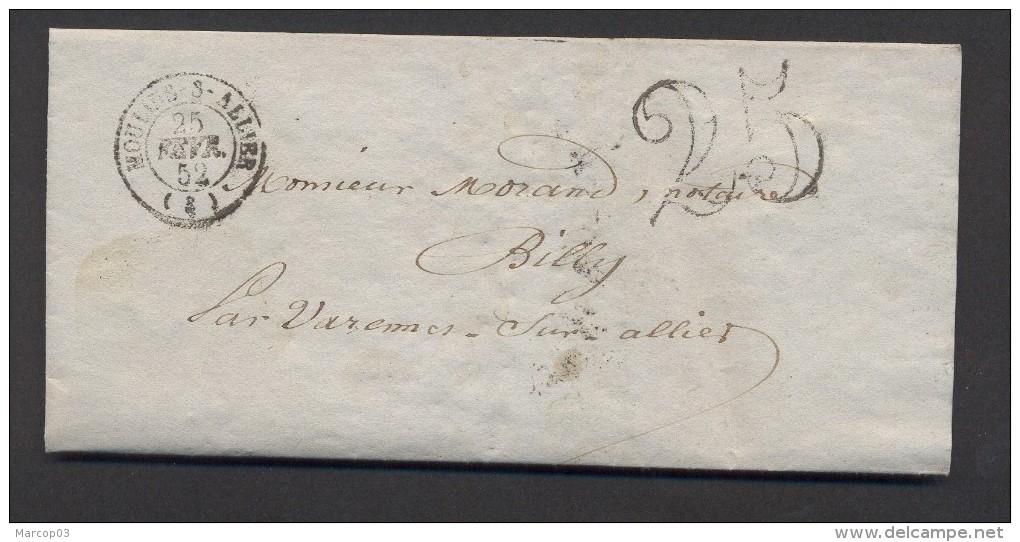 MOULINS-S-ALLIER
25
FEVR.
52
(3)
25
Monsieur Morand, notaire
Billy
Par Varennes-Sur-allier
Marcop03
delcampe.net